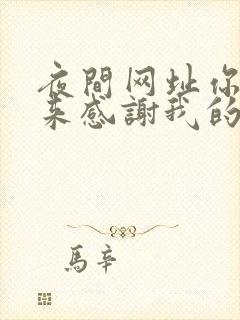 夜間网址你
来感謝我的
馬辛